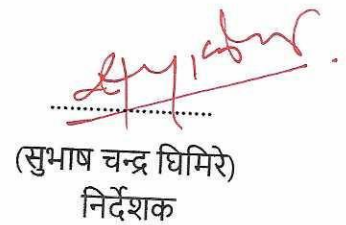 ....................
(सुभाष चन्द्र घिमिरे)
निर्देशक